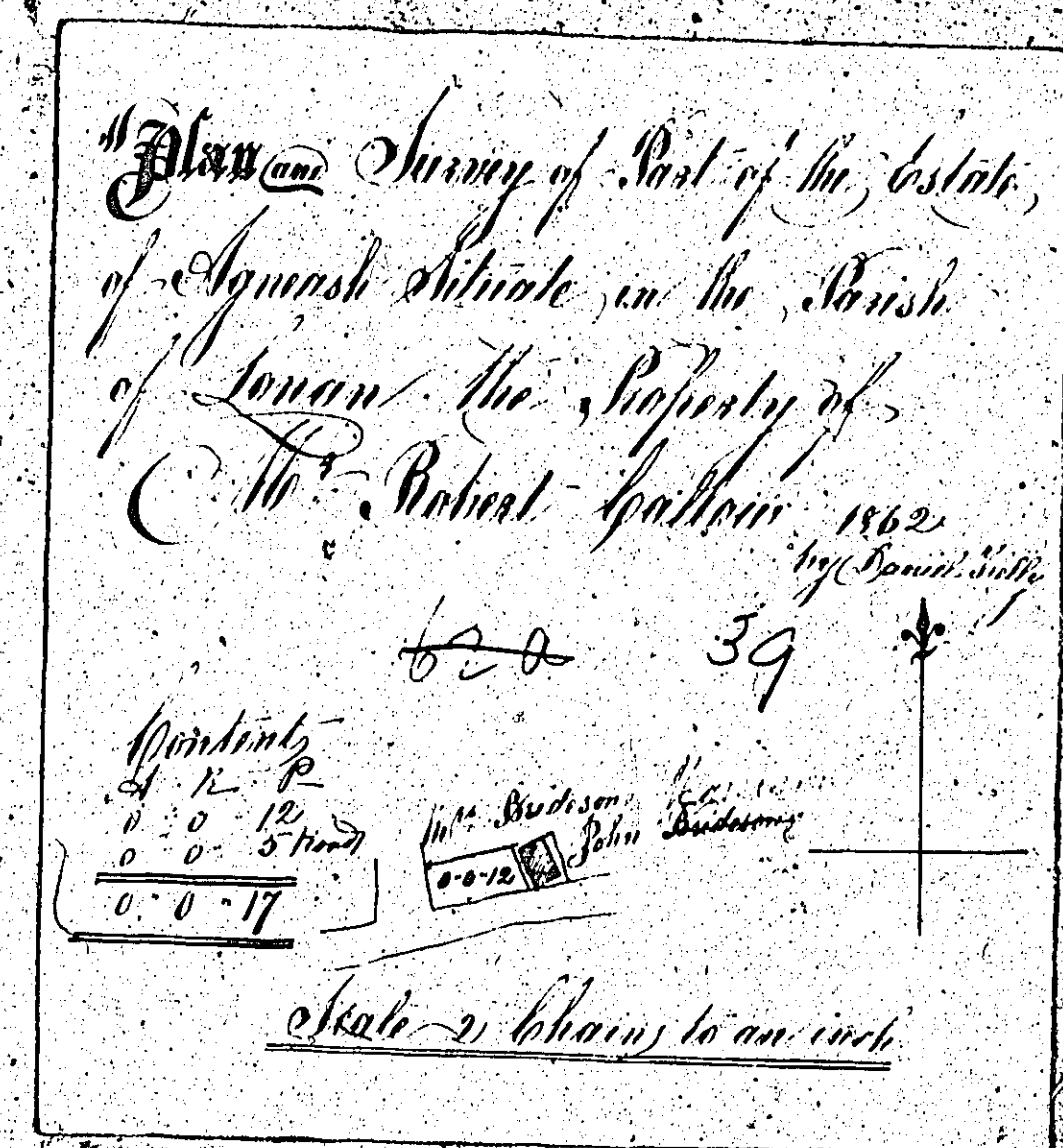 "Plan and Survey of Part of the Estate
of Agneash Situate in the Parish
of Lonan the Property of
Mr Robert Callow 1862
by Daniel Kelly
620 39
Contents
A R P
0 0 12
0 0 5 Road
0 0 17
Mrs Bridson
John Bridsons
0-0-12
Scale 2 Chains to an inch